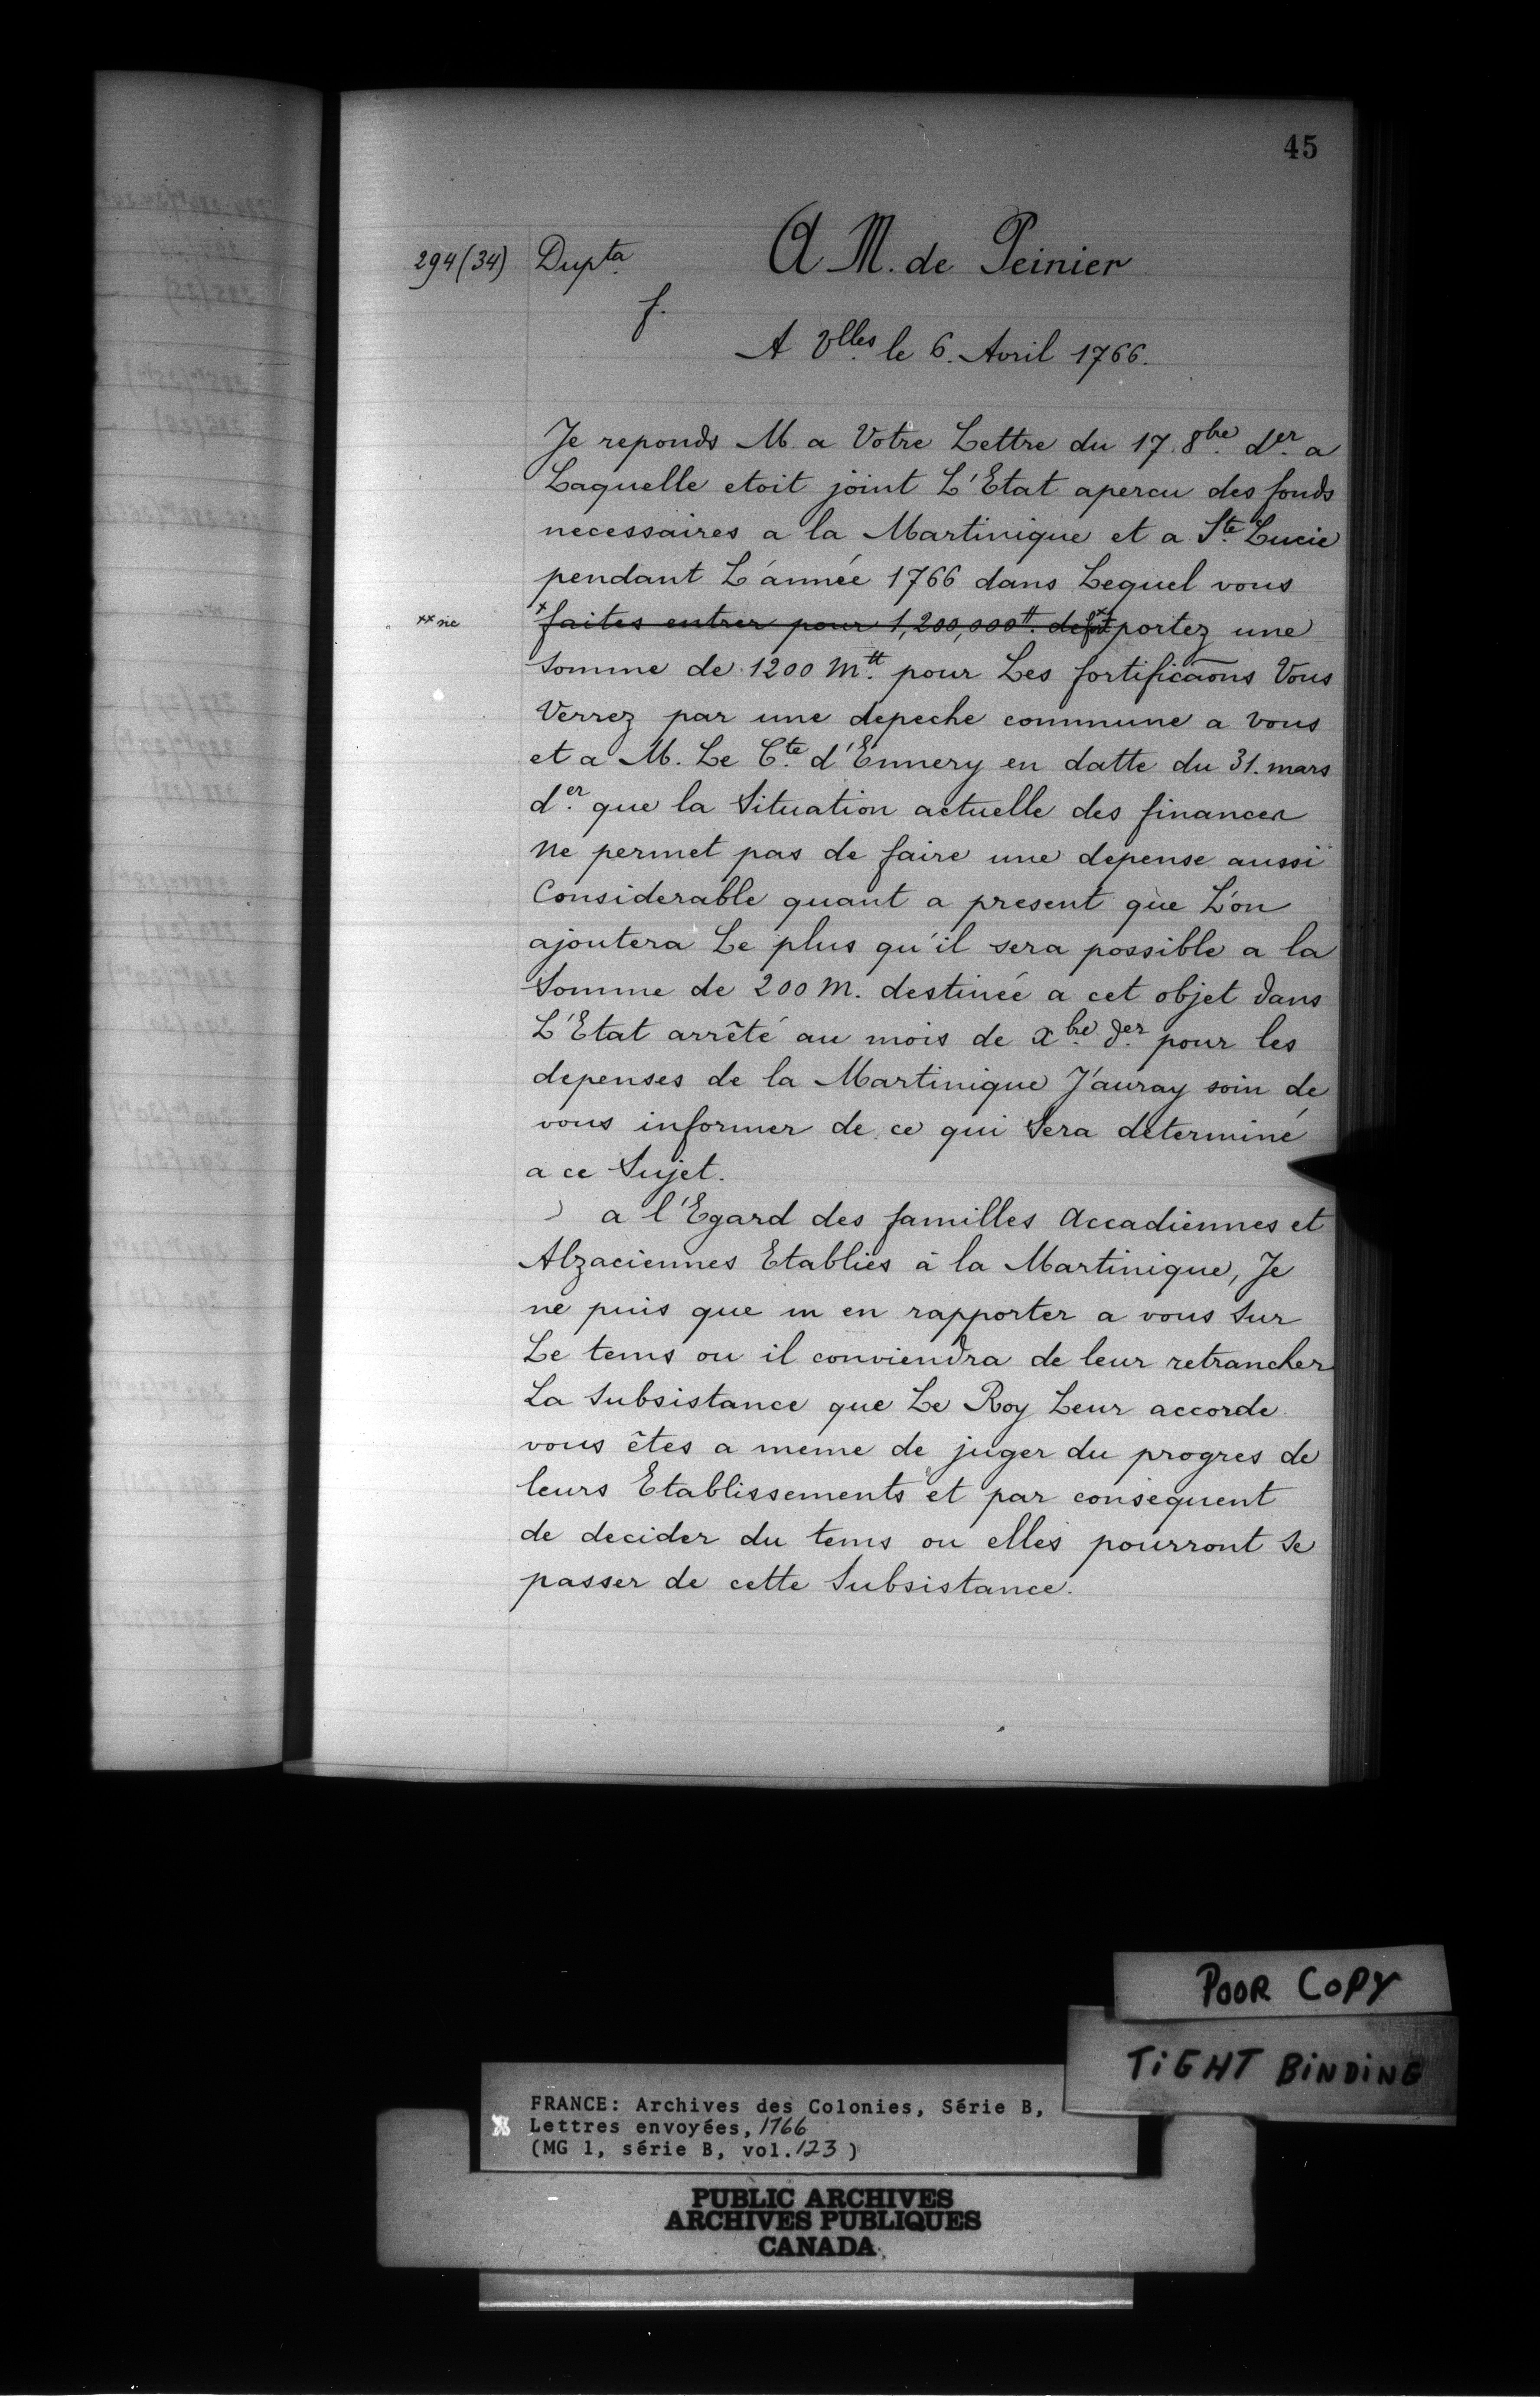 45
294(34) Dupta. A M. de Peinier
f.
A Vlles. le 6. Avril 1766.
Je reponds M. a Votre Lettre du 17. 8bre. der. a
Laquelle etoit joint L'Etat apercu des fonds
necessaires a la Martinique et a Ste. Lucie
pendant L'année 1766 dans Lequel vous
xx sic x faites entrer pour 1,200,000tt. x portez une
Somme de 1200 Mtt. pour Les fortificaons Vous
Verrez par une depeche commune a vous
et a M. Le Cte. d'Ennery en datte du 31. mars
der. que la Situation actuelle des finances
Ne permet pas de faire une depense aussi
Considerable quant a present que L'on
ajoutera Le plus qu'il sera possible a la
Somme de 200 M. destinée a cet objet dans
L'Etat arrêté au mois de xbre. der. pour les
depenses de la Martinique J'auray soin de
vous informer de ce qui Sera determiné
a ce Sujet.
a l'Egard des familles Accadiennes et
Alzaciennes Etablies à la Martinique, Je
ne puis que m en rapporter a vous Sur
Le tems ou il conviendra de leur retrancher
La Subsistance que Le Roy Leur accorde
vous êtes a meme de juger du progres de
leurs Etablissements et par consequent
de decider du tems ou elles pourront Se
passer de cette Subsistance.
POOR COPY
TIGHT BINDING
FRANCE: Archives des Colonies, Série B,
Lettres envoyées, 1766
(MG 1, série B, vol. 123)
PUBLIC ARCHIVES
ARCHIVES PUBLIQUES
CANADA